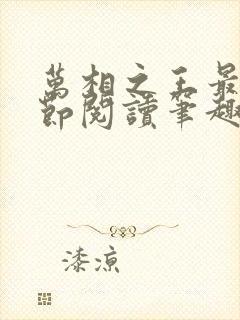 萬相之王最
節閱讀筆趣
漆涼